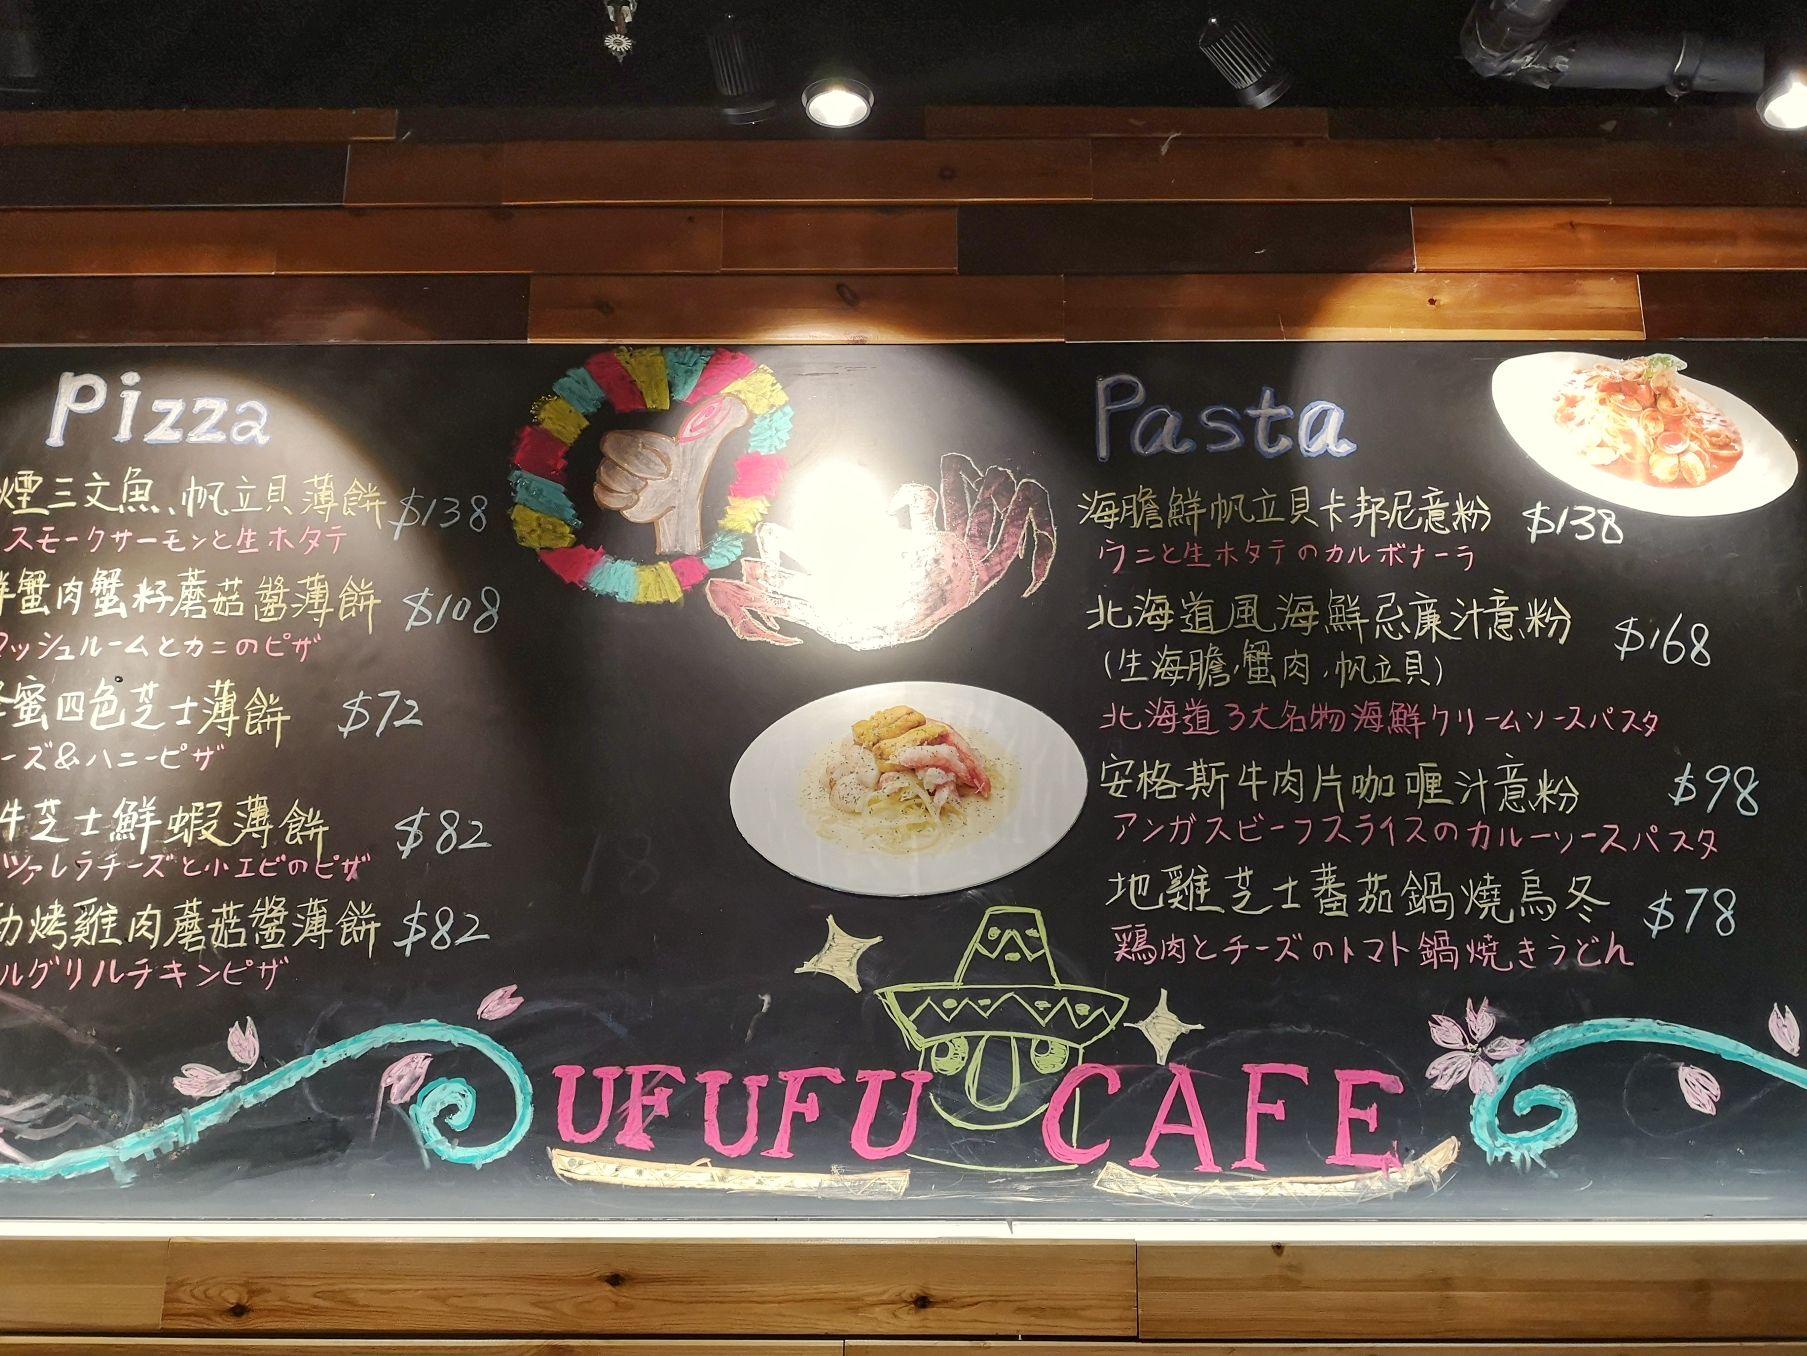 Pizza
煙三文魚、帆立貝薄餅 $138
スモークサーモンと生ホタテ
蟹肉蟹籽蘑菇醬薄餅 $108
マッシュルームとカニのピザ
蜜四色芝士薄餅 $72
ーズ&ハニーピザ
牛芝士鮮蝦薄餅 $82
ツァレラチーズと小エビのピザ
烤雞肉蘑菇醬薄餅 $82
ルグリルチキンピザ
Pasta
海膽鮮帆立貝卡邦尼意粉 $138
ウニと生ホタテのカルボナーラ
北海道風海鮮忌廉汁意粉 $168
(生海膽,蟹肉,帆立貝)
北海道3大名物海鮮クリームソースパスタ
安格斯牛肉片咖喱汁意粉 $98
アンガスビーフスライスのカルーソースパスタ
地雞芝士蕃茄鍋燒烏冬 $78
鶏肉とチーズのトマト鍋焼きうどん
UFUFU CAFE